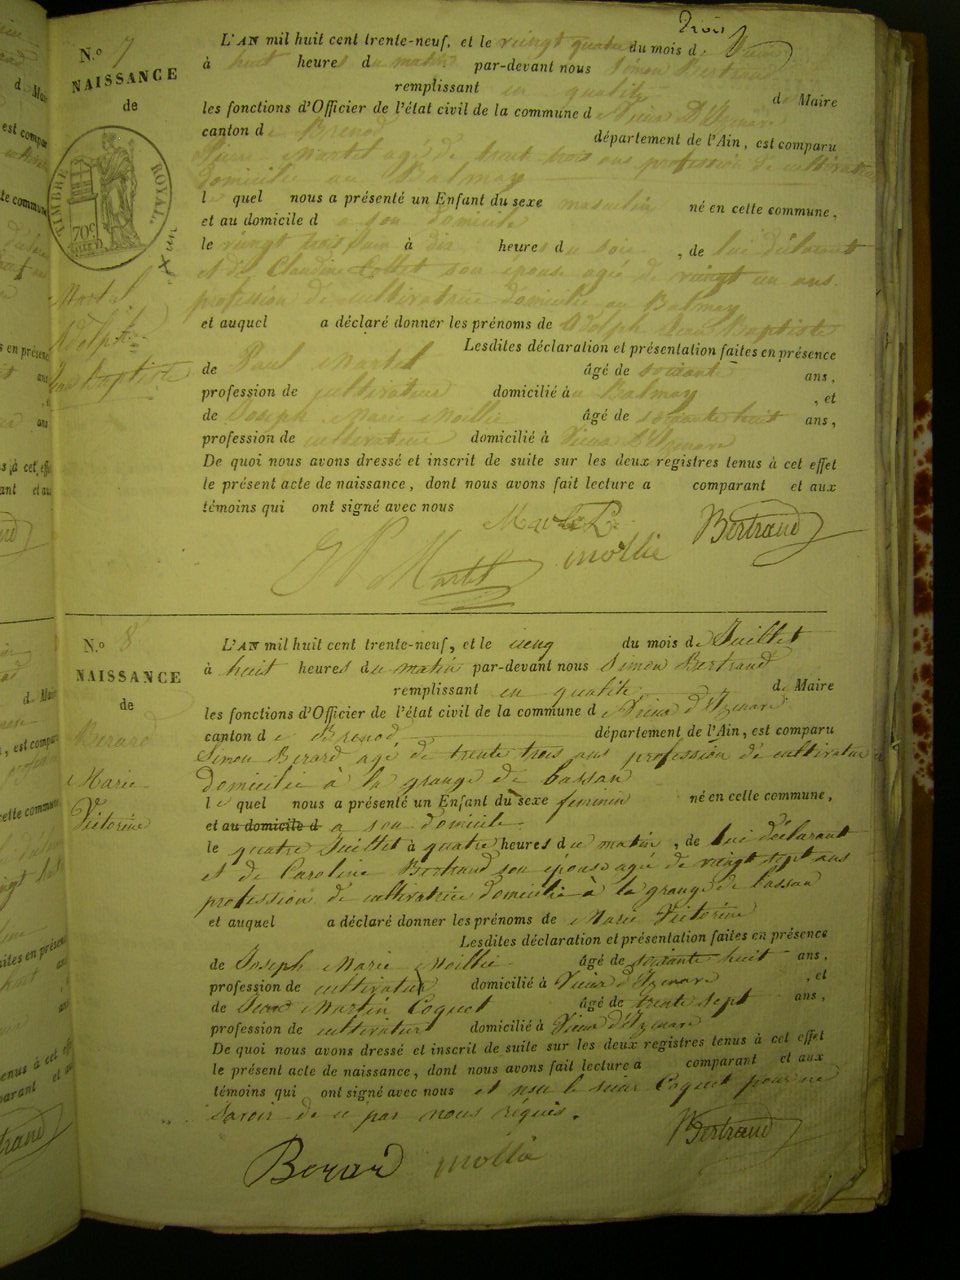 N.º 7
NAISSANCE
de
TIMBRE ROYAL
70c
Martel
Adolphe
Jean Baptiste
L'AN mil huit cent trente-neuf, et le vingt quatre du mois de Juin
à huit heures du matin par-devant nous Simon Bertrand
remplissant en qualité de Maire
les fonctions d'Officier de l'état civil de la commune de Vieux D'Izenave
canton de Brenod département de l'Ain, est comparu
Martel agé de trente trois ans profession de cultivateur
domicilié au Balmay
lequel nous a présenté un Enfant du sexe masculin né en cette commune,
et au domicile d a son domicile
le vingt trois juin à dix heures du soir, de lui déclarant
et de Claudine Collet son épouse agée de vingt un ans
profession de cultivatrice domicilié au Balmay
et auquel a déclaré donner les prénoms de Adolph Jean Baptiste
Lesdites déclaration et présentation faites en présence
de Paul Martel âgé de soixante ans,
profession de cultivateur domicilié au Balmay, et
de Joseph Marie Moillie âgé de soixante huit ans,
profession de cultivateur domicilié à Vieux D'Izenave
De quoi nous avons dressé et inscrit de suite sur les deux registres tenus à cet effet
le présent acte de naissance, dont nous avons fait lecture a comparant et aux
témoins qui ont signé avec nous
Bertrand
P Martel mollie
N.º 8
NAISSANCE
de
Berard
Marie
Victorine
L'AN mil huit cent trente-neuf, et le cinq du mois de Juillet
à huit heures du matin par-devant nous Simon Bertrand
remplissant en qualité de Maire
les fonctions d'Officier de l'état civil de la commune de Vieux d'Izenave
canton de Brenod département de l'Ain, est comparu
Simon Berard agé de trente trois ans profession de cultivateur
domicilié à la grange de bassan
le quel nous a présenté un Enfant du sexe feminin né en cette commune,
et au domicile d a son domicile
le quatre Juillet à quatre heures du matin, de lui déclarant
et de Caroline Bertrand son épouse agée de vingt sept ans
profession de cultivatrice domicilié à la grange de bassan
et auquel a déclaré donner les prénoms de Marie Victorine
Lesdites déclaration et présentation faites en présence
de Joseph Marie Moillie âgé de soixante huit ans,
profession de cultivateur domicilié à Vieux d'Izenave, et
de Jean Martin Coquet âgé de trente sept ans,
profession de cultivateur domicilié à Vieux d'Izenave
De quoi nous avons dressé et inscrit de suite sur les deux registres tenus à cet effet
le présent acte de naissance, dont nous avons fait lecture a comparant et aux
témoins qui ont signé avec nous et non le sieur Coquet pour ne
savoir de ce par nous requis.
Berard mollie Bertrand